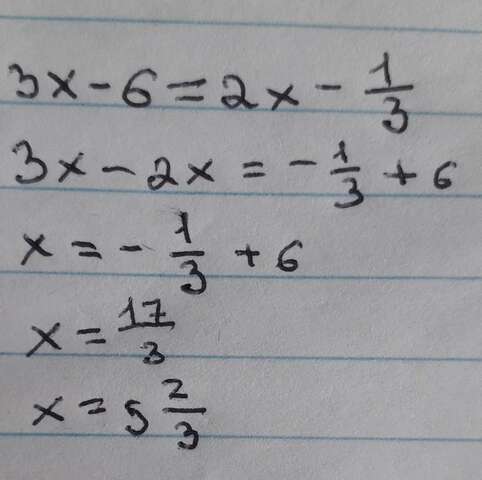 3x - 6 = 2x - 1/3
3x - 2x = - 1/3 + 6
x = - 1/3 + 6
x = 17/3
x = 5 2/3